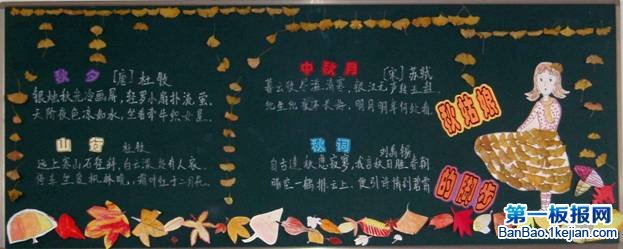 秋夕 [唐] 杜牧
银烛秋光冷画屏，轻罗小扇扑流萤。
天阶夜色凉如水，坐看牵牛织女星。
山行 杜牧
远上寒山石径斜，白云深处有人家。
停车坐爱枫林晚，霜叶红于二月花。
中秋月 [宋] 苏轼
暮云收尽溢清寒，银汉无声转玉盘
此生此夜不长好，明月明年何处看。
秋词 刘禹锡
自古逢秋悲寂寥，我言秋日胜春朝
晴空一鹤排云上，便引诗情到碧霄
秋姑娘
的脚步
第一板报网
BanBao.1kejian.com